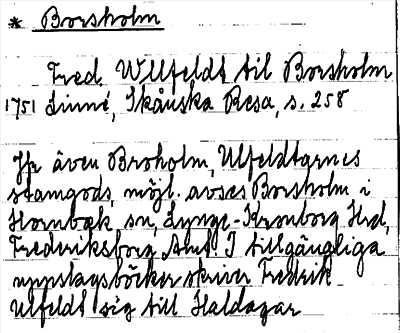 * Borsholm
Fred. Ulfeldt til Borsholm
1751 Linné, Skånska Resa, s. 258
Jfr även Broholm, Ulfeldtarnes
stamgods, möjl. avses Borsholm i
Hornbæk sn, Lynge-Kronborg Hrd,
Frederiksborg Amt. I tillgängliga
uppslagsböcker skriver Fredrik
Ulfeldt sig till Haldagar